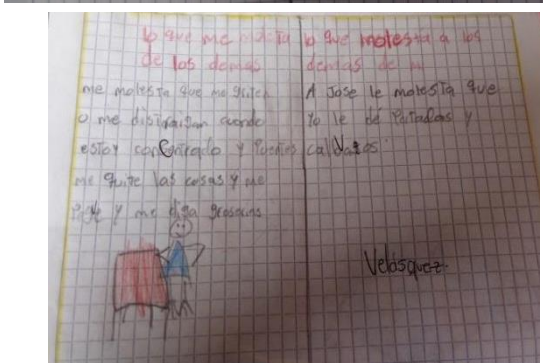 lo que me molesta
de los demas
me molesta que me griten
o me distraigan cuando
estoy concentrado y
me quite las cosas y me
y me diga groserias
lo que molesta a los
demas de mi
A Jose le molesta que
Yo le dé Patadas y
calvazos
Velasquez